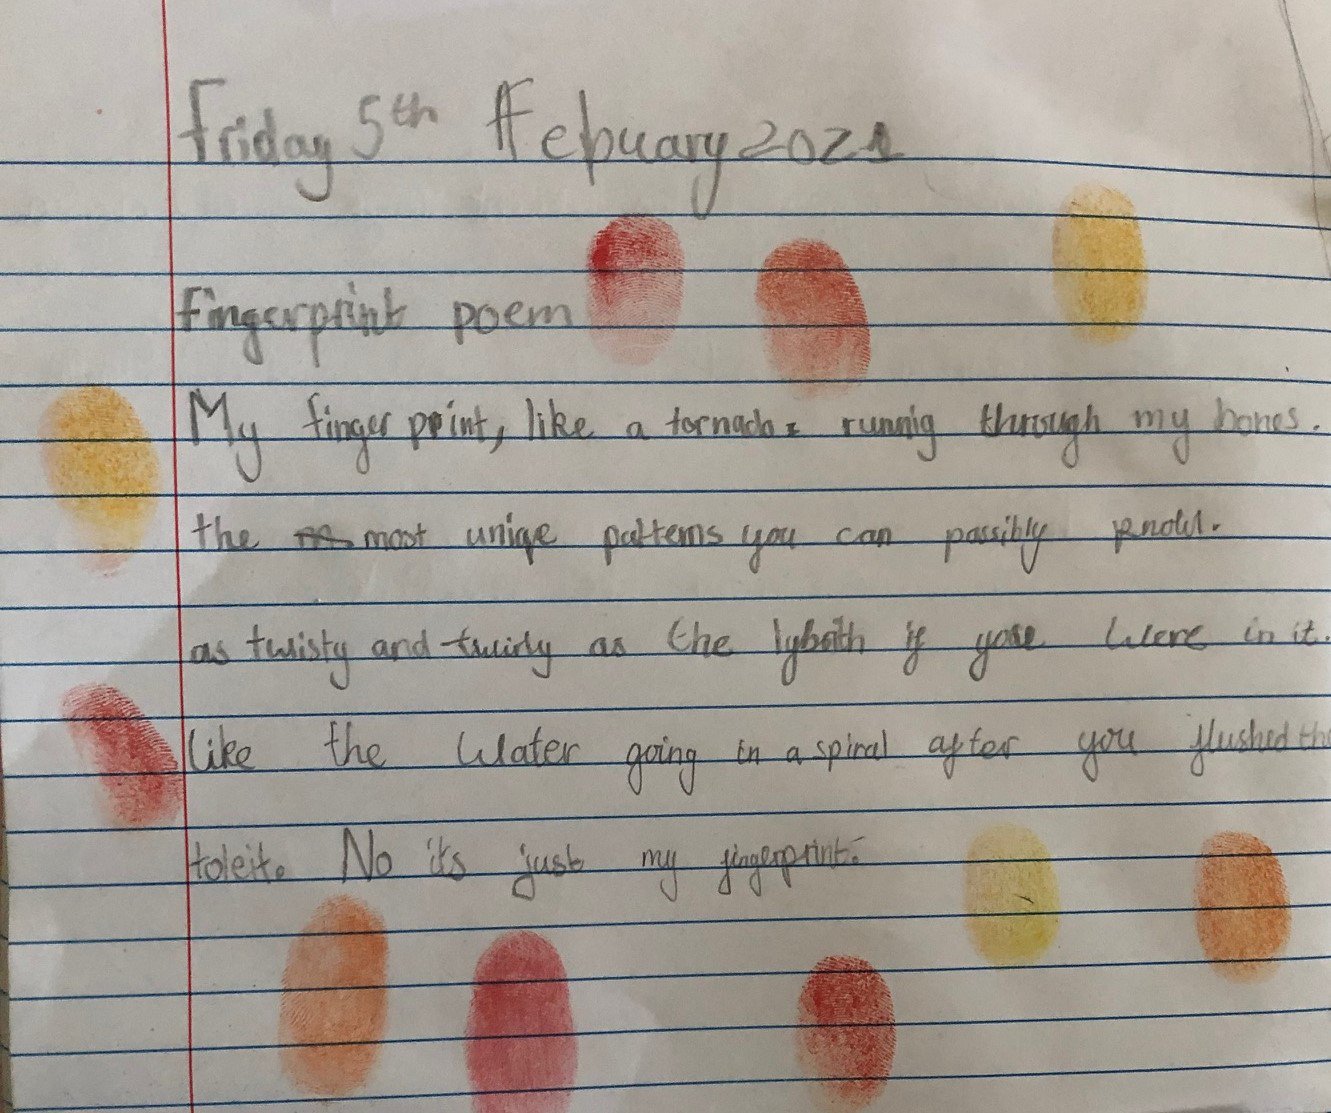 Friday 5th Febuary 2021
Fingerprint poem
My finger print, like a tornado runnig through my bones.
the most uniqe patterns you can possibly know.
as twisty and twirly as the if you were in it.
like the water going in a spiral after you flushed the
toleit. No its just my fingerprint.